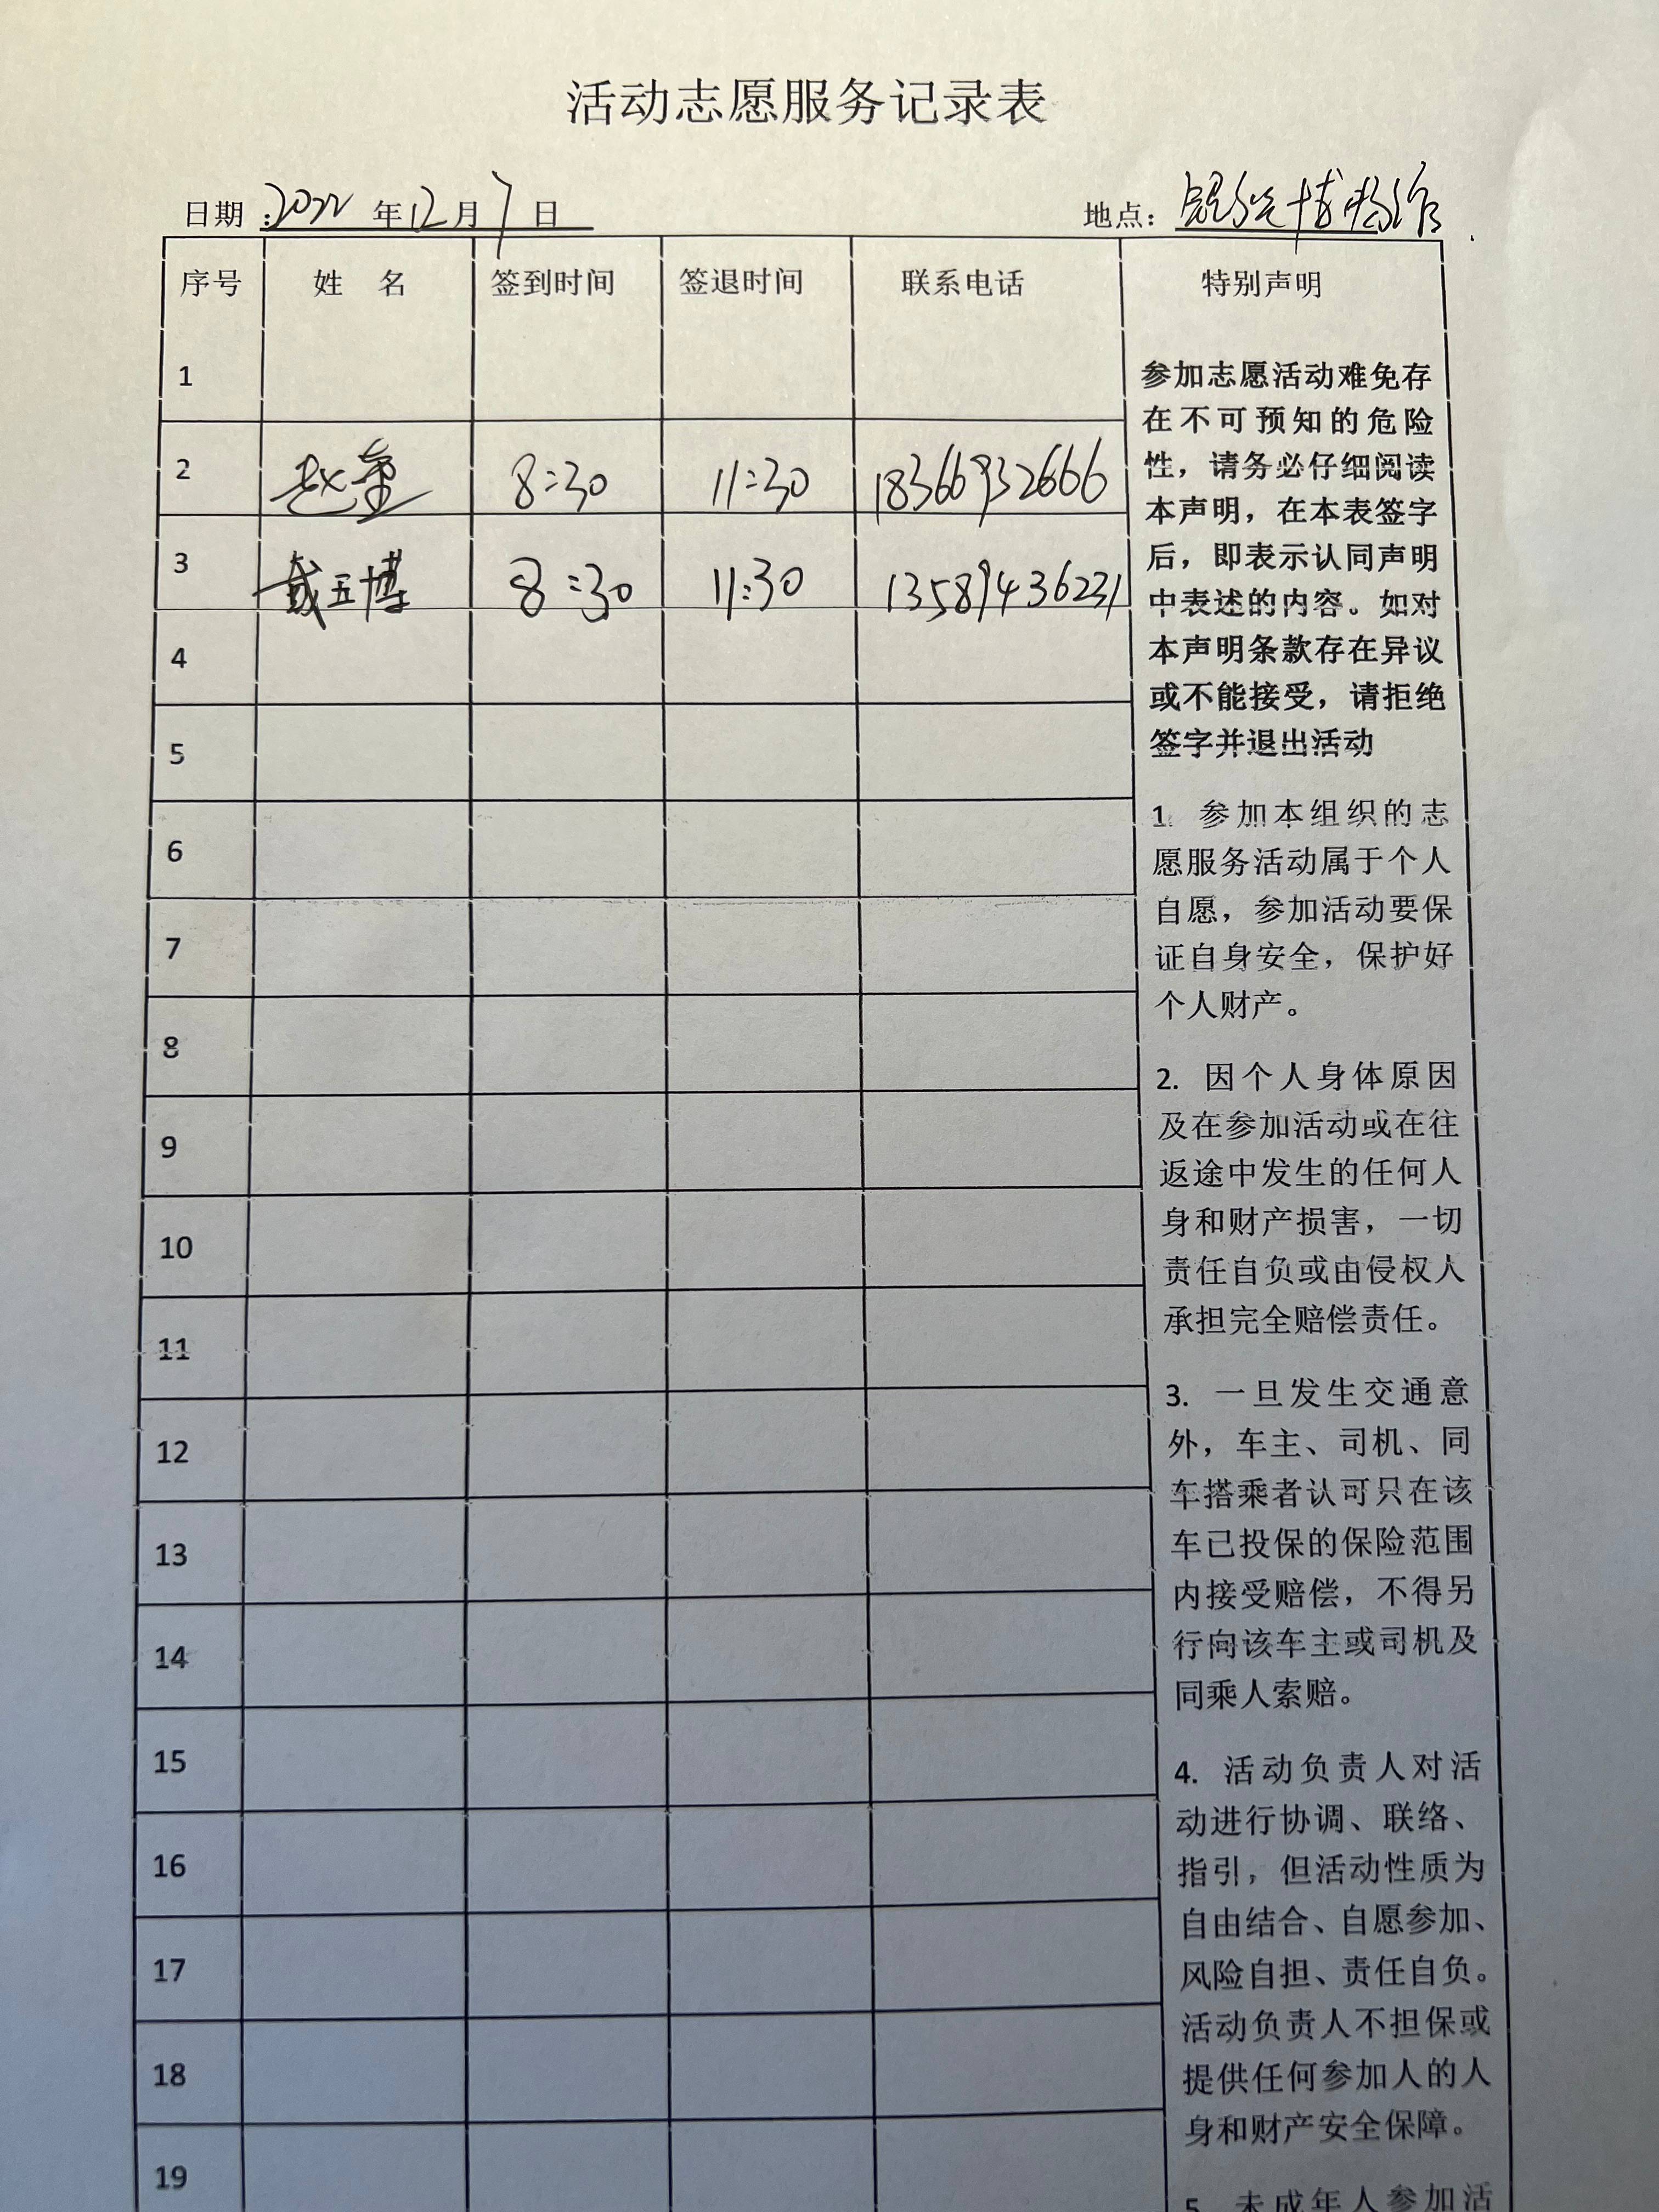 活动志愿服务记录表
日期：2022年12月7日 地点：博物馆
序号 姓 名 签到时间 签退时间 联系电话 特别声明
1
2 赵 8:30 11:30 18366932666
3 戴玉博 8:30 11:30 13589436231
4
5
6
7
8
9
10
11
12
13
14
15
16
17
18
19
参加志愿活动难免存
在不可预知的危险
性，请务必仔细阅读
本声明，在本表签字
后，即表示认同声明
中表述的内容。如对
本声明条款存在异议
或不能接受，请拒绝
签字并退出活动
1. 参加本组织的志
愿服务活动属于个人
自愿，参加活动要保
证自身安全，保护好
个人财产。
2. 因个人身体原因
及在参加活动或在往
返途中发生的任何人
身和财产损害，一切
责任自负或由侵权人
承担完全赔偿责任。
3. 一旦发生交通意
外，车主、司机、同
车搭乘者认可只在该
车已投保的保险范围
内接受赔偿，不得另
行向该车主或司机及
同乘人索赔。
4. 活动负责人对活
动进行协调、联络、
指引，但活动性质为
自由结合、自愿参加、
风险自担、责任自负。
活动负责人不担保或
提供任何参加人的人
身和财产安全保障。
5. 未成年人参加活